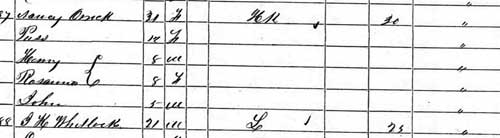 87 Nancy Orrick 31 F HK 20 "
Puss 12 F "
Henry 8 m "
Rosanna 8 F "
John 5 m "
88 J H Whitlock 21 m L 1 25 "